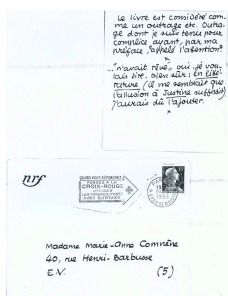 Le livre est considéré com-
me un outrage et. Outra-
ge dont je suis tenu pour
complice ayant, par ma
préface "appelé l'attention"
x
..."n'avait rêvé", oui, je vou-
lais dire, bien sûr : en litté-
rature (il me semblait que
l'allusion à Justine suffisait)
j'aurais dû l'ajouter.
x
nrf
PENSEZ A LA
CROIX-ROUGE
UTILISEZ
LES TIMBRES-POSTE
AVEC SURTAXE
1955
Madame Marie-Anne Comnène
40, rue Henri-Barbusse
E.V. (5)